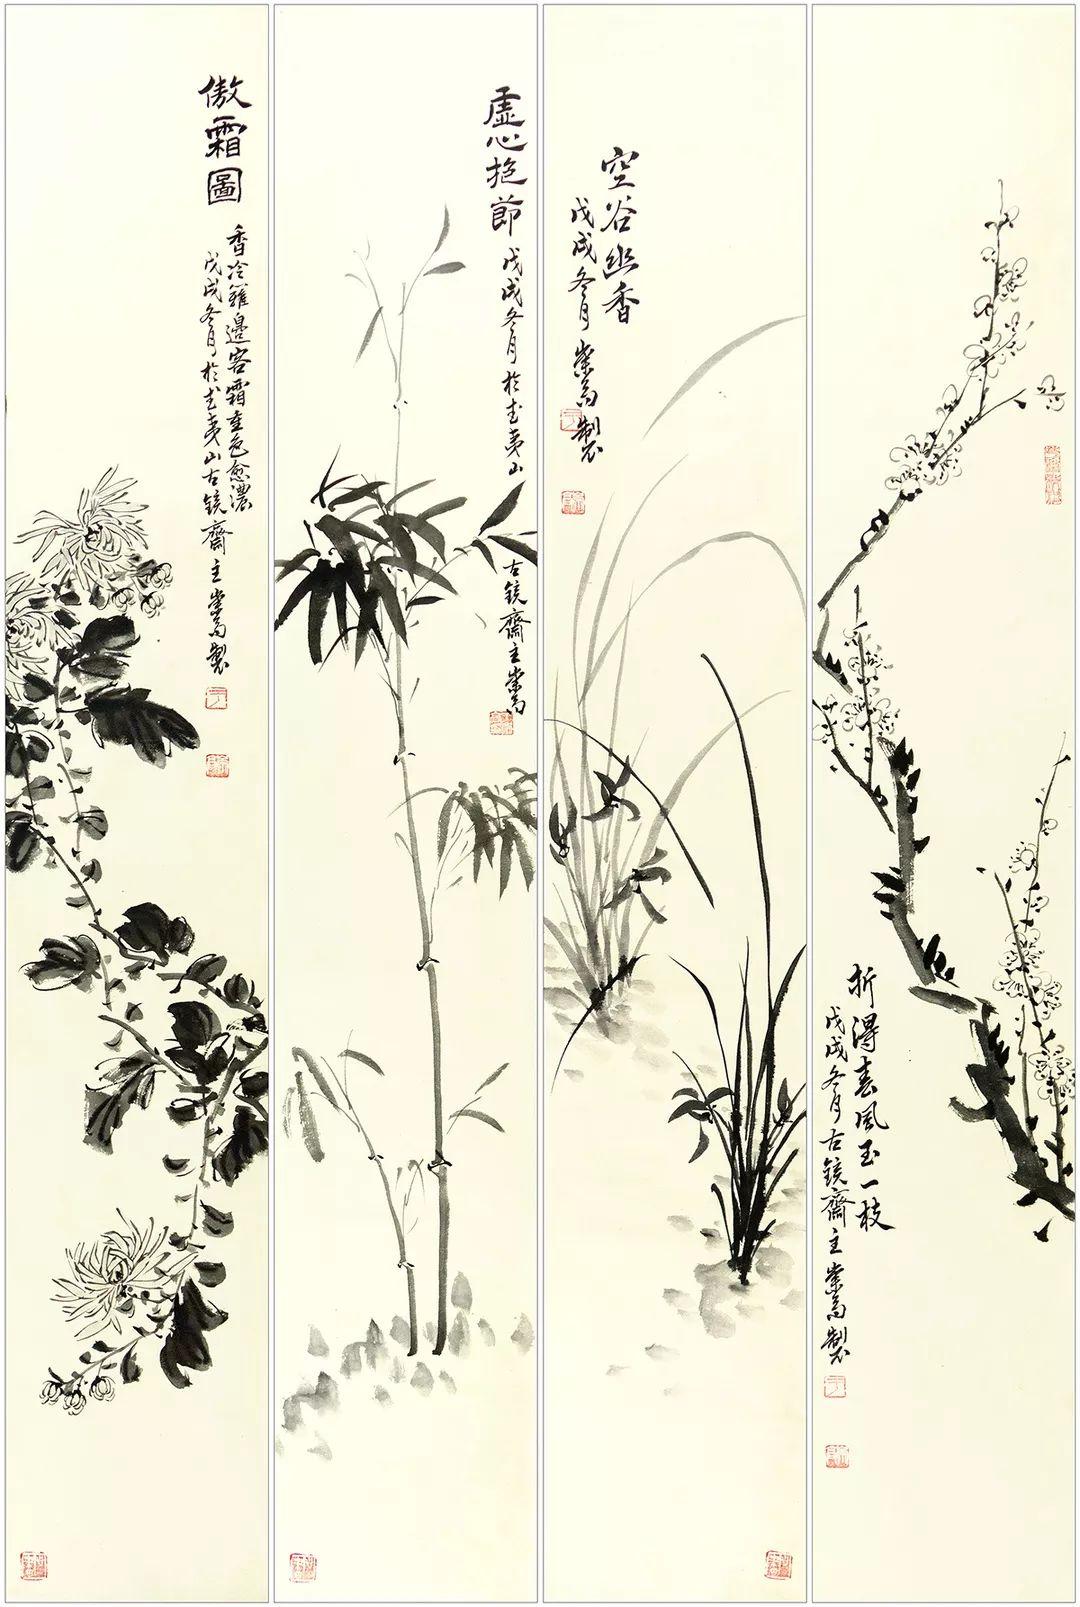 折得春風玉一枝
戊戌冬月古鏡齋主崇高製
空谷幽香
戊戌冬月崇高製
虛心抱節
戊戌冬月於武夷山古鏡齋主崇高
傲霜圖
香冷籬邊客霜重色愈濃
戊戌冬月於武夷山古鏡齋主崇高製